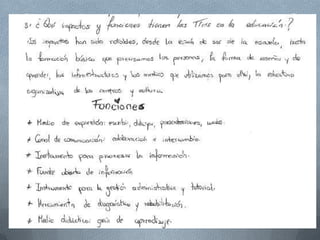 3. ¿Qué impactos y funciones tienen las TIC's en la educación?
Los impactos han sido notables, desde la razón de ser de la escuela, hasta
la formación básica que precisamos las personas, la forma de enseñar y de
aprender, las infraestructuras y los medios que utilizamos para ello, la estructura
organizativa de los centros y cultura.
Funciones
* Medio de expresión: escribir, dibujar, presentaciones, webs.
* Canal de comunicación: colaboración e intercambio.
* Instrumento para procesar la información.
* Fuente abierta de información.
* Instrumento para la gestión administrativa y tutorial.
* Herramienta de diagnóstico y rehabilitación.
* Medio didáctico: guía de aprendizaje.